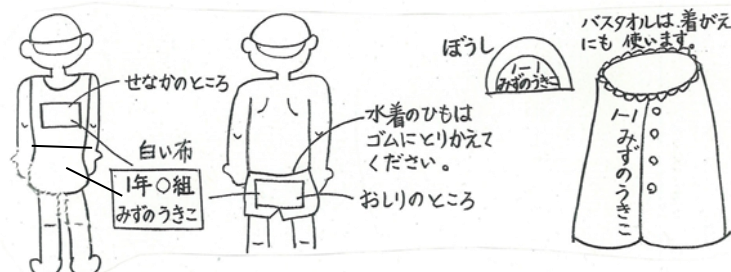 せなかのところ
白い布
1年〇組
みずのうきこ
水着のひもは
ゴムにとりかえて
ください。
おしりのところ
ぼうし
1-1
みずのうきこ
バスタオルは、着がえ
にも 使います。
1-1 みずのうきこ